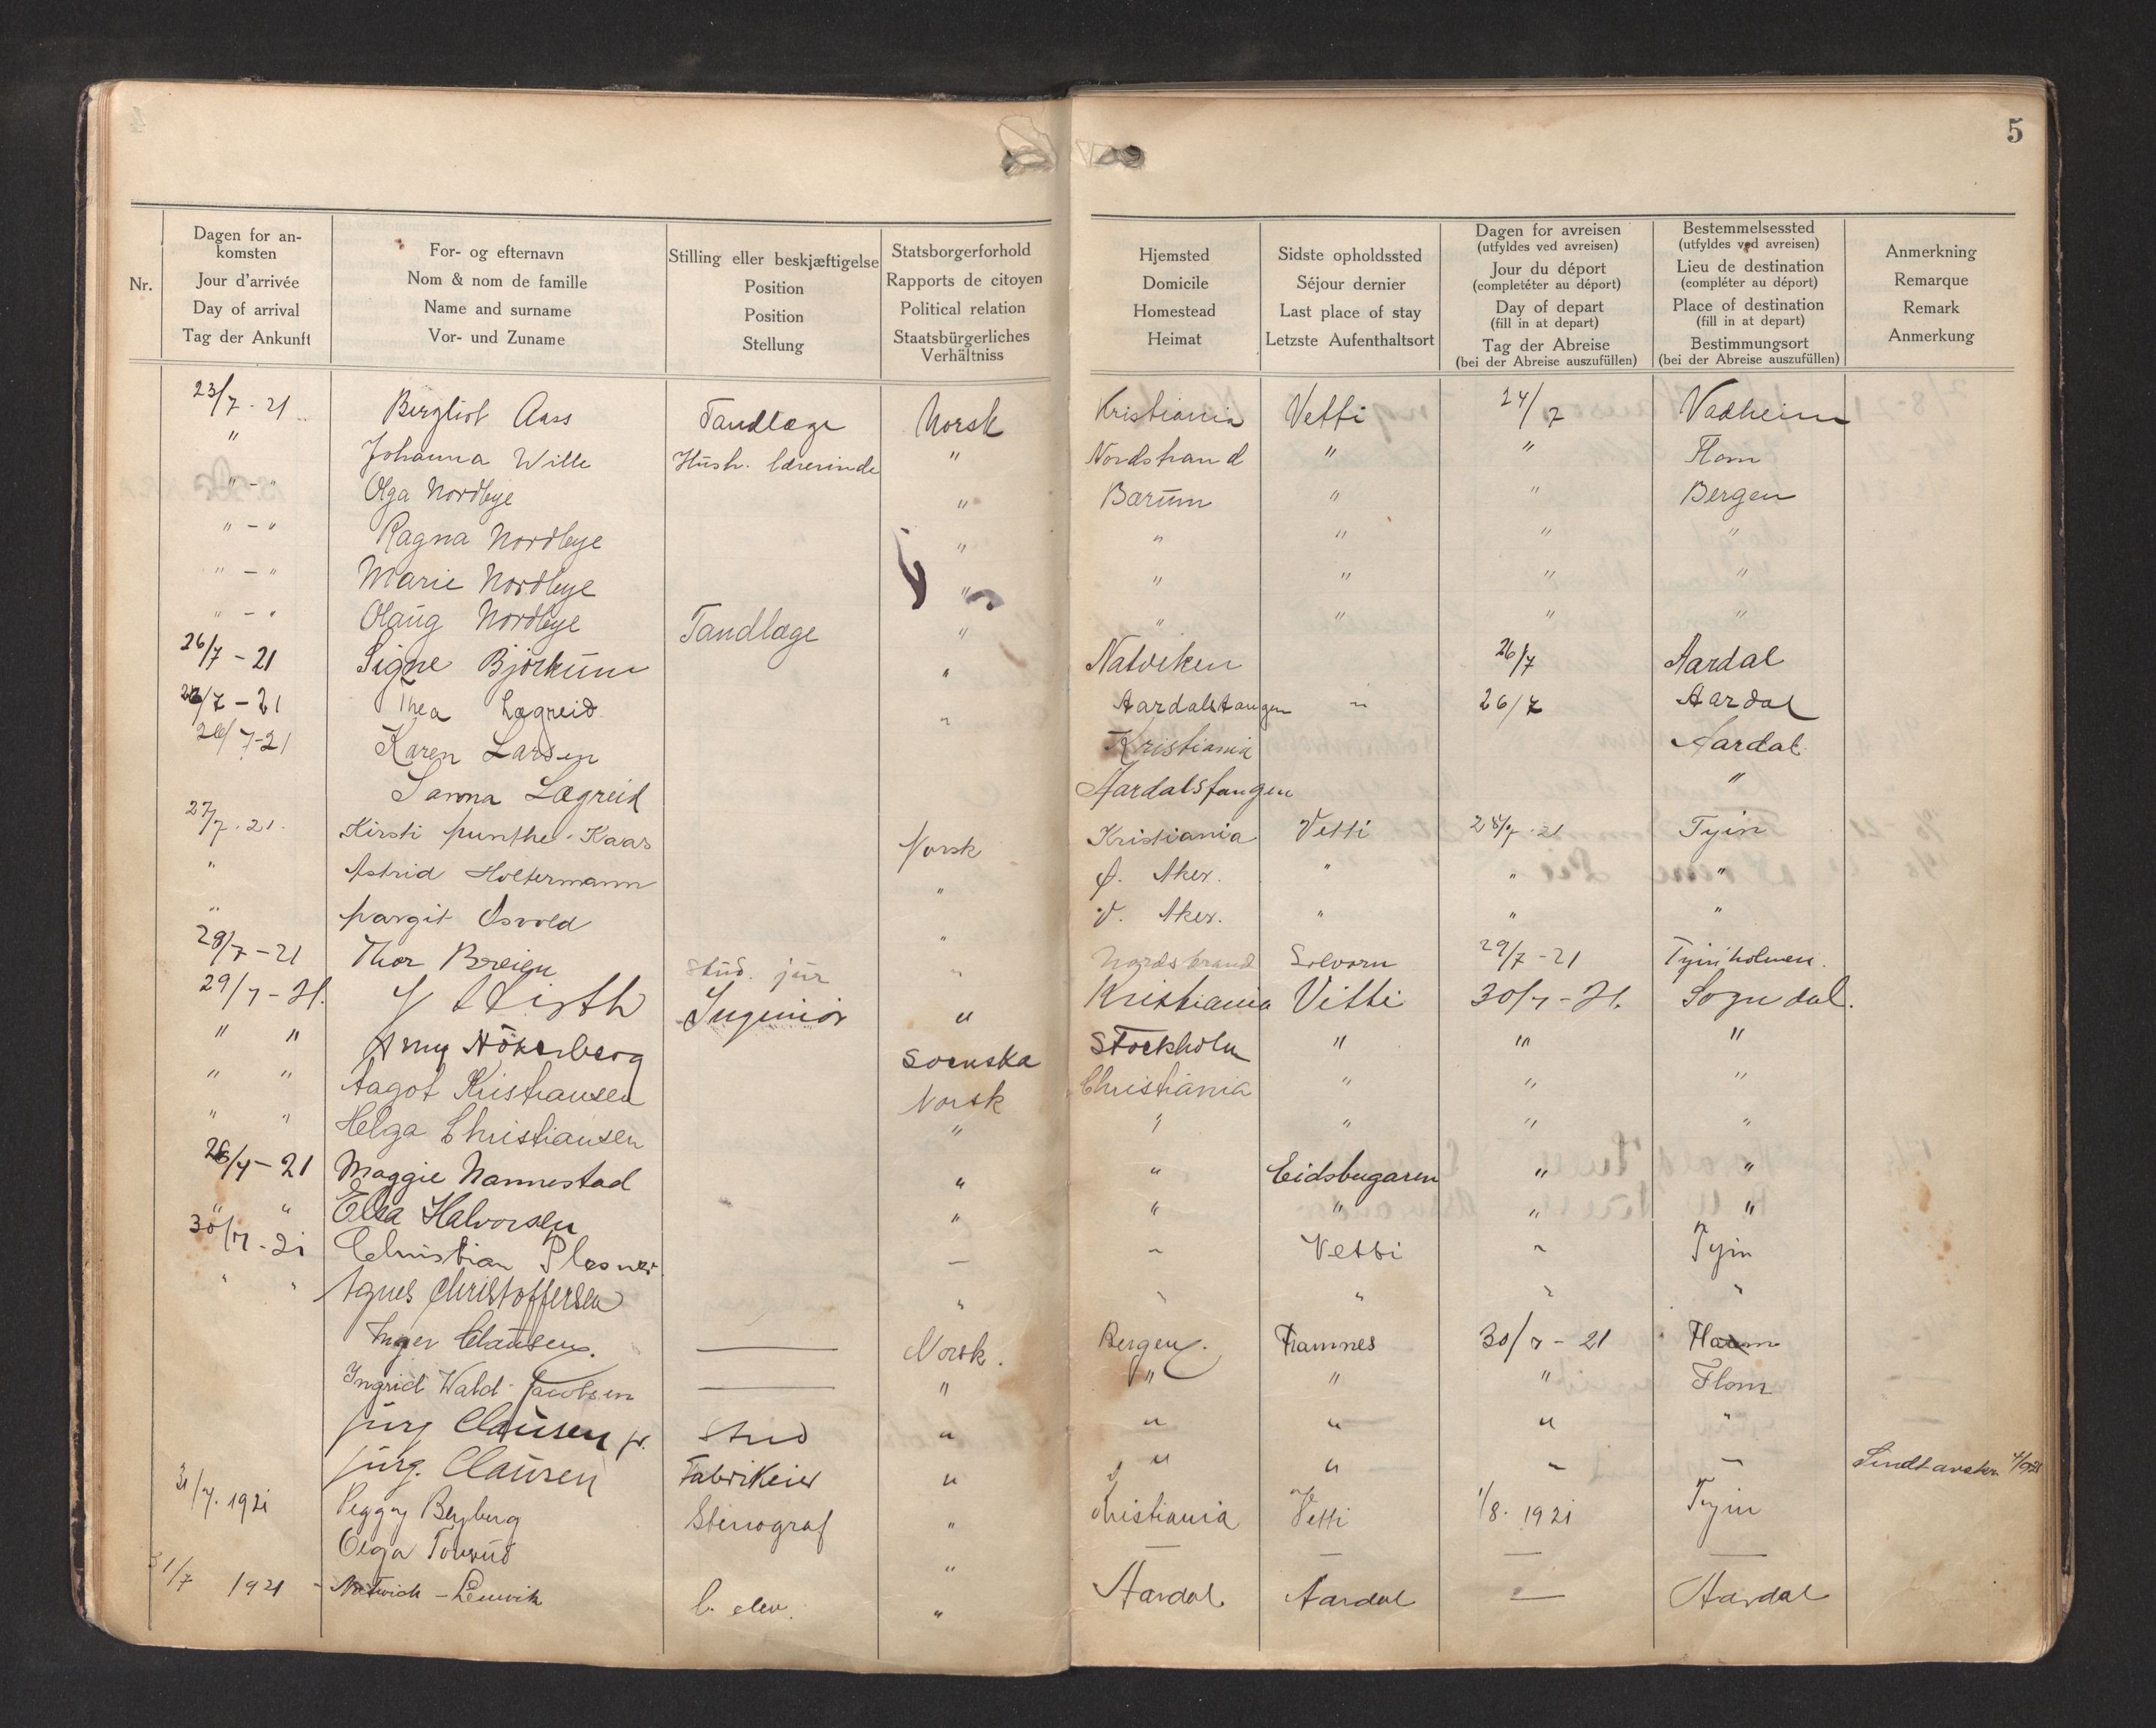 5
Nr.
Dagen for an-
komsten
Jour d'arrivée
Day of arrival
Tag der Ankunft
For- og efternavn
Nom & nom de famille
Name and surname
Vor- und Zuname
Stilling eller beskjæftigelse
Position
Position
Stellung
Statsborgerforhold
Rapports de citoyen
Political relation
Staatsbürgerliches
Verhältniss
Hjemsted
Domicile
Homestead
Heimat
Sidste opholdssted
Séjour dernier
Last place of stay
Letzste Aufenthaltsort
Dagen for avreisen
(utfyldes ved avreisen)
Jour du déport
(completéter au départ)
Day of depart
(fill in at depart)
Tag der Abreise
(bei der Abreise auszufüllen)
Bestemmelsessted
(utfyldes ved avreisen)
Lieu de destination
(compléter au déport)
Place of destination
(fill in at depart)
Bestimmungsort
(bei der Abreise auszufüllen)
Anmerkning
Remarque
Remark
Anmerkung
23/7 - 21 Bergliot Aass Tandlæge Norsk Kristiania Vetti 24/7 Vadheim
" Johanna Wille Hush. lærerinde " Nordstrand " " Flom
" - " Olga Nordbye " Bærum " " Bergen
" - " Ragna Nordbye " " " " "
" - " Marie Nordbye " " " " "
" - " Olaug Nordbye Tandlæge " " " " "
26/7 - 21 Signe Bjørkum " Natviken 26/7 Aardal
26/7 - 21 Thea Lægreid " Aardalstangen " 26/7 Aardal
26/7-21 Karen Larsen Kristiania Aardal
Sanna Lægreid Aardalstangen "
27/7.21. Kirsti Munthe-Kaas Norsk Kristiania Vetti 28/7.21 Tyin
" Astrid Holtermann " Ø. Aker. " " "
" Margit Osvold " V. Aker. " " "
28/7-21 Thor Breien stud. jur " Nordstrand Solvorn 29/7-21 Tyinholmen.
29/7-21. Ingeniør " Kristiania Vitti 30/7-21. Sogndal.
" " Amy Nökerberg Svenska Stockholm " " "
" " Aagot Kristiansen Norsk Christiania " " "
" " Helga Christiansen " " " " "
26/7-21 Maggie Nannestad " " Eidsbugaren " "
" " Elsa Halvorsen " " " " "
30/7-21 Christian Plesner — " Vetti " Tyin
" " Agnes Christoffersen " " " " "
Inger Clausen. — Norsk. Bergen. Framnes 30/7-21 Flaam
Ingrid Wald-Jacobsen — " " " " Flom
Jürg Clausen jr. Stud " " " " "
Jürg. Clausen Fabrikeier " " " " "
31/7.1921 Peggy Bergburg Stenograf " Christiania Vetti 1/8.1921 Tyin
Olga " — — — —
31/7 1921 - elev. " Aardal Aardal — Aardal